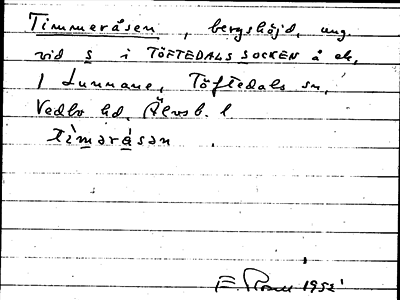 Timmeråsen, bergshöjd, ung.
vid s i TÖFTEDALS SOCKEN å ek,
1 Lunnane, Töftedals sn,
Vedbo hd, Älvsb. l
tìməråsən.
E. 1952